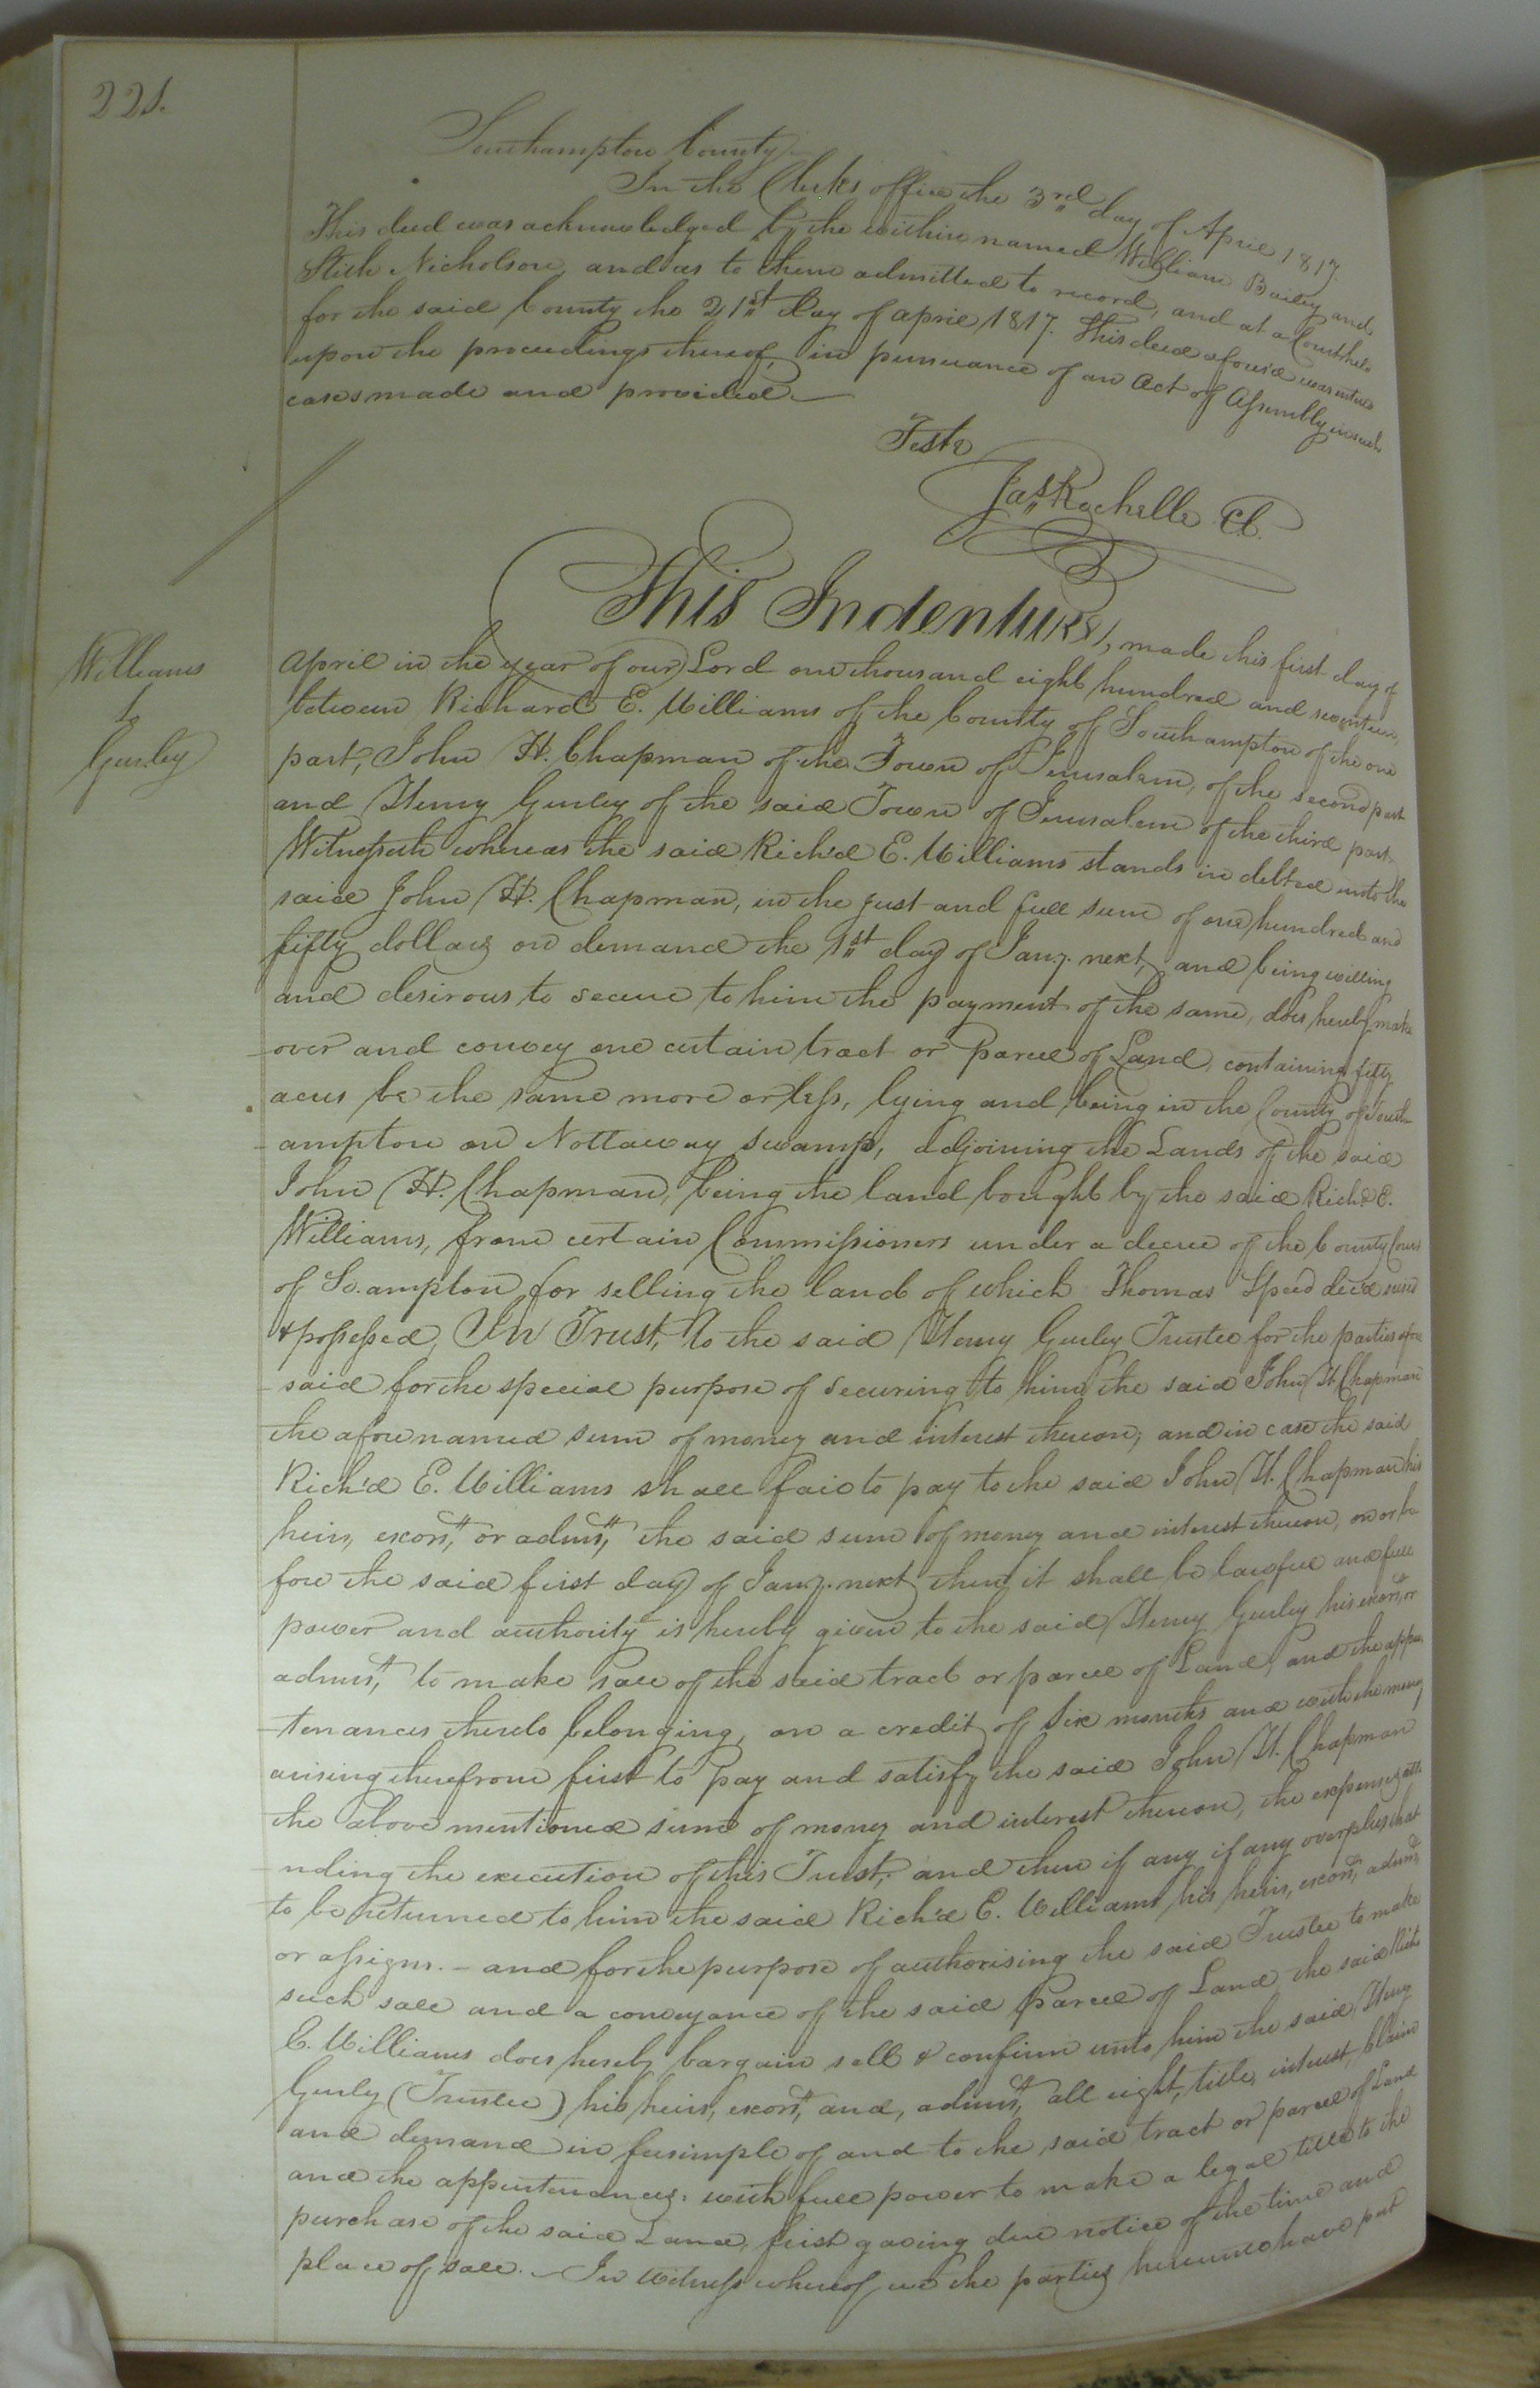 221.
Southampton County.
In the Clerks office the 3rd day of April 1817.
This deed was acknowledged by the within named William Bailey and
Stith Nicholson, and as to them admitted to record, and at a Court held
for the said County the 21st day of april, 1817. This deed afores'd was entered
upon the proceedings thereof, in pursuance of an act of Assembly in such
cases made and provided.
Teste
Jas Rochelle Cl.
This Indenture, made this first day of
Williams
to
Gurley
april in the year of our Lord one thousand eight hundred and seventeen,
between Richard E. Williams of the County of Southampton of the one
part, John H. Chapman of the Town of Jerusalem, of the second part
and Henry Gurley of the said Town of Jerusalem of the third part
Witnesseth whereas the said Rich'd E. Williams stands in debted unto the
said John H. Chapman, in the just and full sum of one hundred and
fifty dollars on demand the 1st day of Jany. next, and being willing
and desirous to secure to him the payment of the same, does hereby make
over and convey one certain tract or parcel of Land, containing fifty
acres be the same more or less, lying and being in the County of South-
ampton on Nottaway Swamp, adjoining the Lands of the said
John H. Chapman, being the land bought by the said Rich'd E.
Williams, from certain Commissioners under a decree of the County Court
of So.ampton for selling the land of which Thomas Speed dec'd seized
& possessed, In Trust, to the said Henry Gurley Trustee for the parties afore
said for the special purpose of securing to him the said John H. Chapman
the aforenamed sum of money and interest thereon; and in case the said
Rich'd E. Williams shall fail to pay to the said John H. Chapman his
heirs, exors, or admrs, the said sum of money and interest thereon, on or be
fore the said first day of Jany. next, then it shall be lawful and full
power and authority is hereby given to the said Henry Gurley his exors, or
admrs, to make sale of the said tract or parcel of Land, and the appur
tenances thereto belonging, on a credit of six months and with the money
arising therefrom first to pay and satisfy the said John H. Chapman
the above mentioned sum of money and interest thereon, the expenses atte
nding the execution of this Trust, and then if any if any overplus that
to be returned to him the said Rich'd E. Williams his heirs, exors, admrs,
or assigns. - and for the purpose of authorising the said Trustee to make
such sale and a conveyance of the said parcel of Land, the said Rich'd
E. Williams does hereby bargain sell & confirm unto him the said Henry
Gurley (Trustee) his heirs, exors, and, admrs, all right, title, interest, claim
and demand in feesimple of and to the said tract or parcel of Land
and the appurtenances, with full power to make a legal title to the
purchase of the said Land, first gaving due notice of the time and
place of sale. In witness whereof we the parties hereunto have put